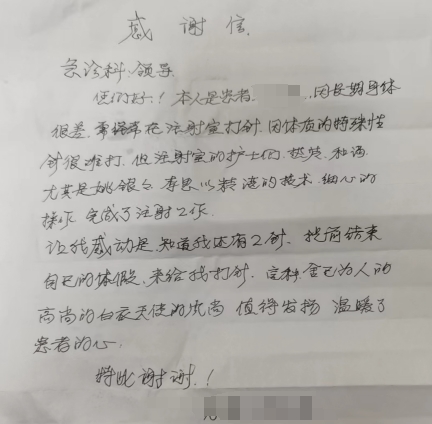 感谢信
急诊科领导
您们好！本人是患者 因长期身体
很差 常年在注射室打针 因体质的特殊性
针很难打 但注射室的护士们 热情 和谐
尤其是姚银 李 以精湛的技术 细心的
操作 完成了注射工作
让我感动是 知道我还有2针 提前结束
自己的休假 来给我打针 这种舍己为人的
高尚的白衣天使的风尚 值得发扬 温暖了
患者的心
特此谢谢！